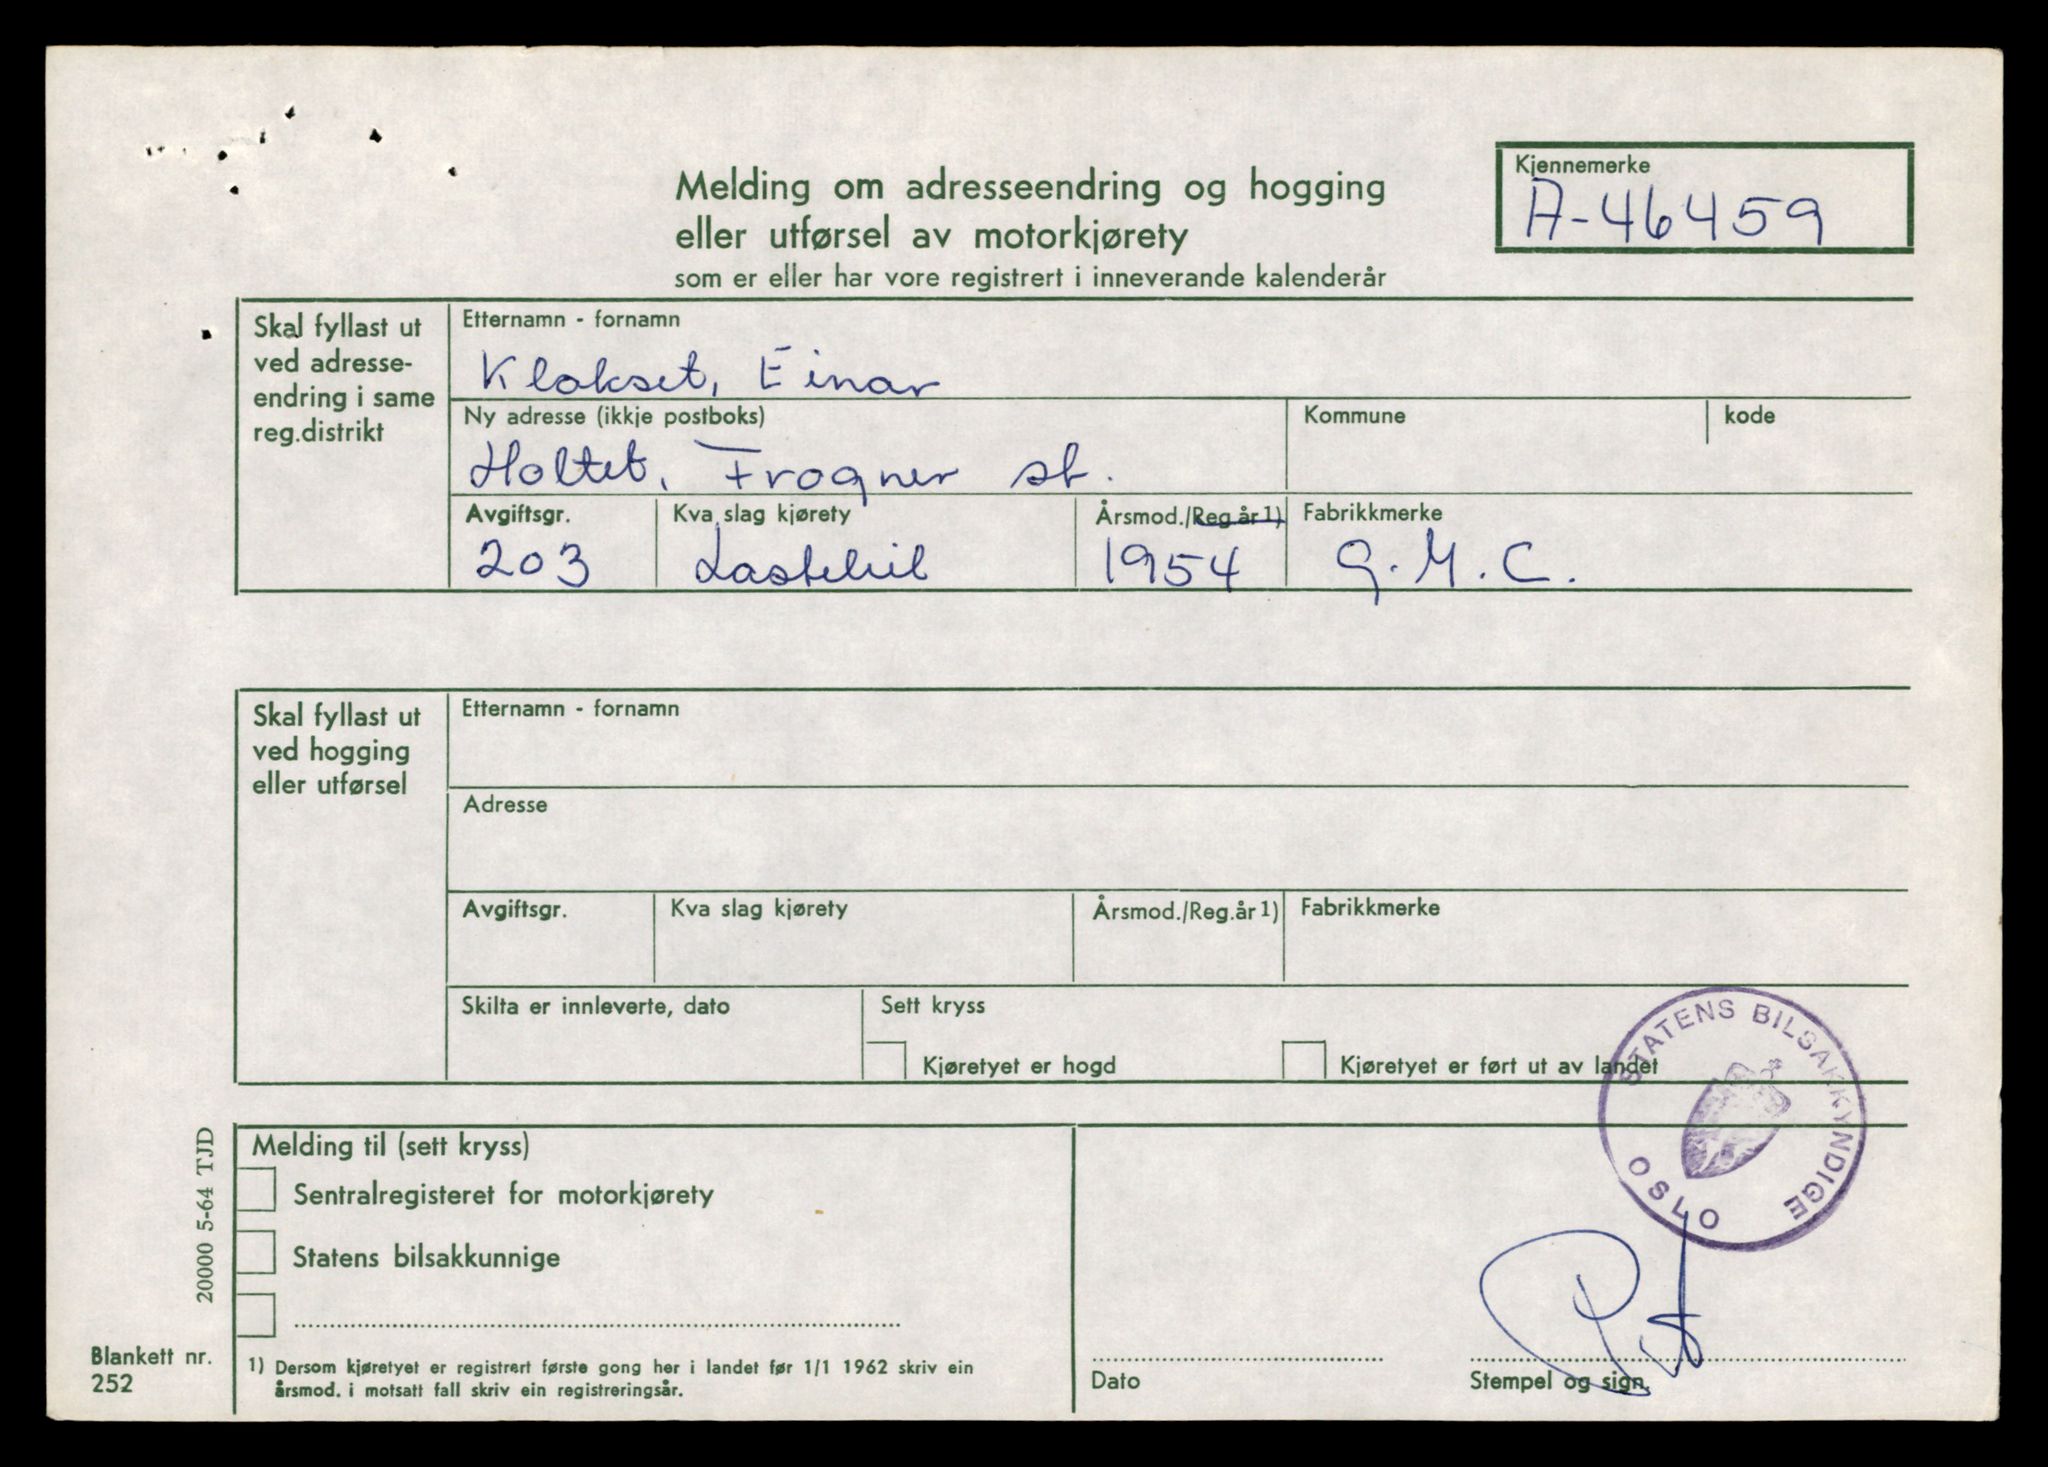 Melding om adresseendring og hogging
eller utførsel av motorkjørety
som er eller har vore registrert i inneverande kalenderår
Kjennemerke
A-46459
Skal fyllast ut
ved adresse-
endring i same
reg.distrikt
Etternamn - fornamn
Klokset, Einar
Ny adresse (ikkje postboks)
Holtet, Frogner st.
Kommune
kode
Avgiftsgr.
203
Kva slag kjørety
Lastebil
Årsmod./Reg.år1)
1954
Fabrikkmerke
G.M.C.
Skal fyllast ut
ved hogging
eller utførsel
Etternamn - fornamn
Adresse
Avgiftsgr.
Kva slag kjørety
Årsmod./Reg.år1)
Fabrikkmerke
Skilta er innleverte, dato
Sett kryss
Kjøretyet er hogd
Kjøretyet er ført ut av landet
STATENS BILSAKKYNDIGE
OSLO
Melding til (sett kryss)
Sentralregisteret for motorkjørety
Statens bilsakkunnige
1) Dersom kjøretyet er registrert første gong her i landet før 1/1 1962 skriv ein
årsmod. i motsatt fall skriv ein registreringsår.
Dato
Stempel og sign.
20000 5-64 TJD
Blankett nr.
252